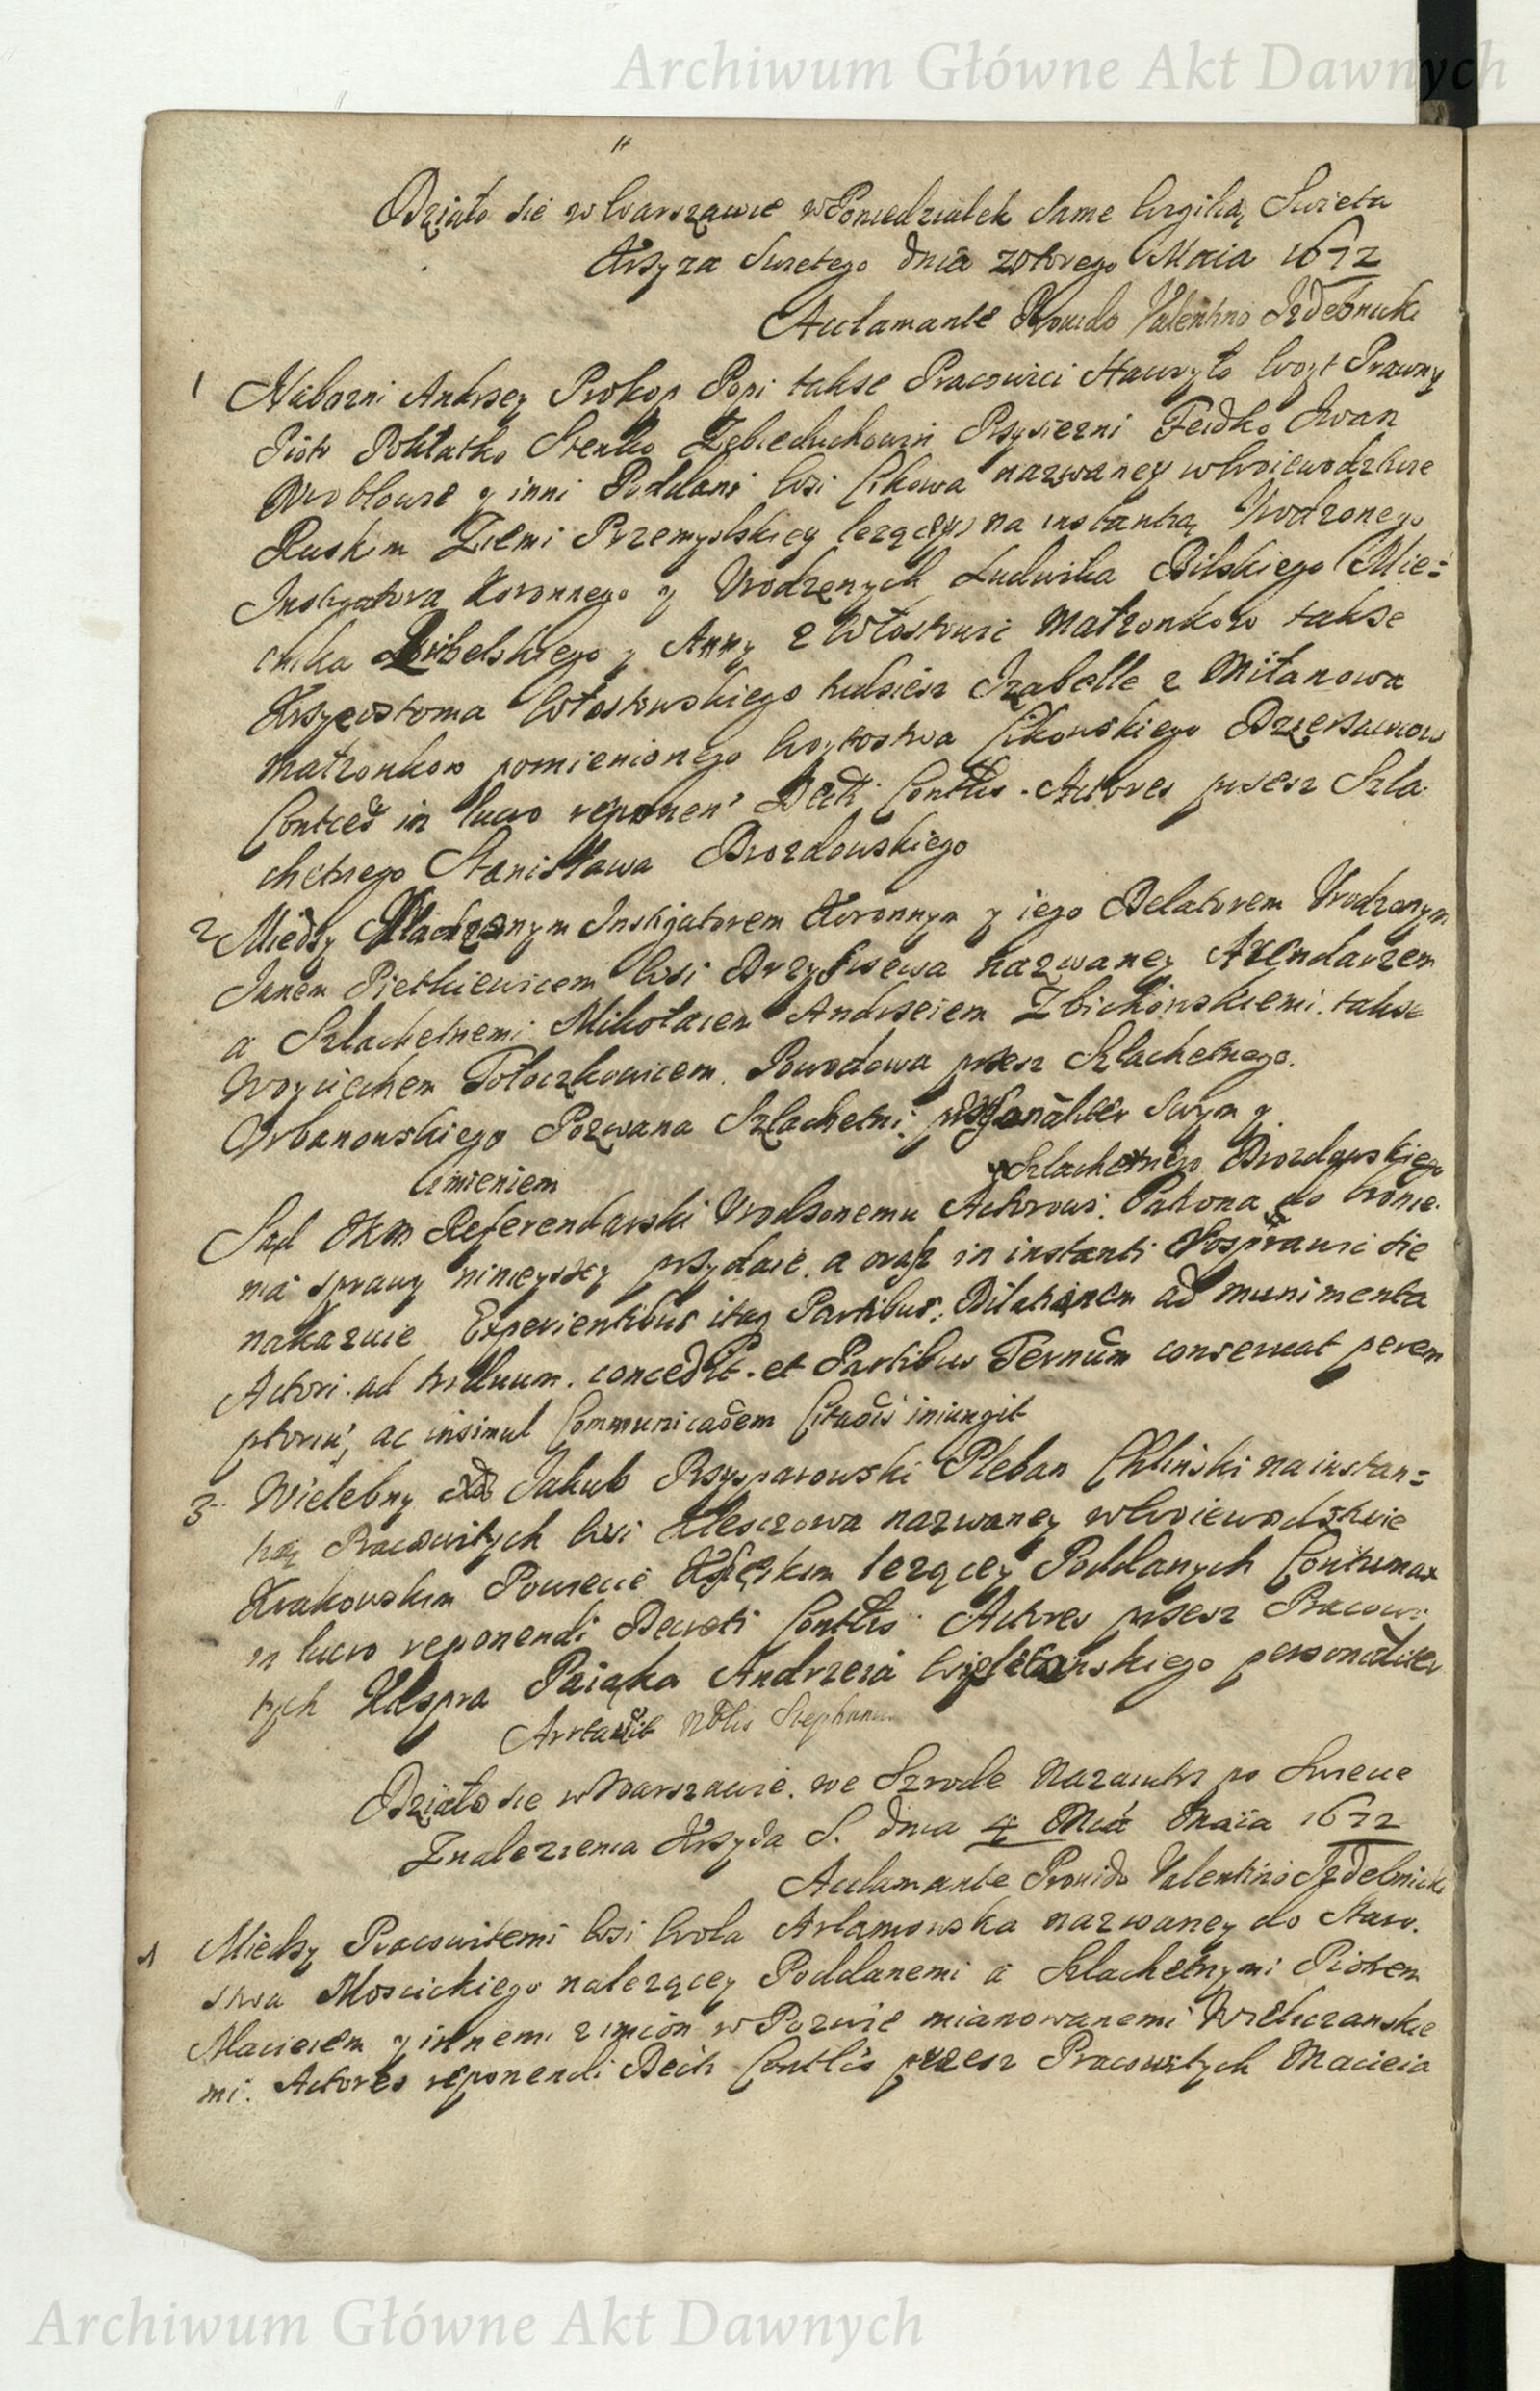 Archiwum Główne Akt Dawnych
Działo sie w Warszawie w Poniedziałek Same Wigilią Swieta
Krzyza Swietego dnia wtorego Maia 1672
Acclamante Provido Valentino Izdebnicki
1 Nabozni Andrzey Prokop Popi takze Pracowici Hawryło Woyt Prawny
Piotr Stenko Przysiezni Fedko Iwan
y inni Poddani Wsi Cikowa nazwaney w Woiewodztwie
Ruskim Ziemi Przemyslskiey lezącey na instantią Urodzonego
Instigatora Koronnego y Urodzonych Ludwika Bilskiego Mie=
cnika y Anny z Włostowic Małzonkow takze
Krzysztoma Włostowskiego tudziesz Izabelle z Milanowa
Małzonkow pomienionego Woytostwa Cikowskiego Dzierzawcow
in lucro reponen Decti Contlis. Actores przesz Szla
chetnego Stanisława Drozdowskiego
2 Miedzy Urodzonym Instigatorem Koronnym y iego Delatorem Urodzonym
Janem Pietkiewicem Wsi nazwaney Arendarzem
a Szlachetnemi Mikołaiem Andrzeiem Zbichowskiemi takze
Woyciechem Tołoczkowicem. Powodowa przesz Szlachetnego
Orbanowskiego Pozwana Szlachetni personaliter Swym y
Imieniem Szlachetnego Drozdowskiego
Sąd JKM Referendarski Urodzonemu Aktorowi Patrona do bronie
nia sprawy ninieyszey przydaie a oraz in instanti Rosprawic sie
nakazuie Experientibus itaq Partibus, Dilationem ad munimenta
Actori ad triduum concedit et Partibus Ternum conservat perem
ptoriu, ac insimul Communicaoem Citaois iniungit
3 Wielebny Xdz Jakub Przyparowski Pleban Chlinski na instan=
tią Pracowitych Wsi Klesczowa nazwaney w Woiewodztwie
Krakowskim Powiecie lezącey Poddanych Contumax
in lucro reponendi Decreti Contlis Actores przesz Pracowi
tych Kaspra Paiąka Andrzeia personaliter
Nblis Stephanus
Działo sie w Warszawie we Szrode Nazaiutrz po Swiecie
Znalezienia Krzyza S. dnia 4 Mca Maia 1672
Acclamante Provido Valentino Izdebnicki
1 Miedzy Pracowitemi Wsi Wola Arlamowska nazwaney do Staro
stwa Moscickiego nalezącey Poddanemi a Szlachetnymi Piotrem
Macieiem y innemi z imion w Pozwie mianowanemi Wieliczanskie
mi. Actores reponendi Decti Contlis przesz Pracowitych Macieia
Archiwum Główne Akt Dawnych